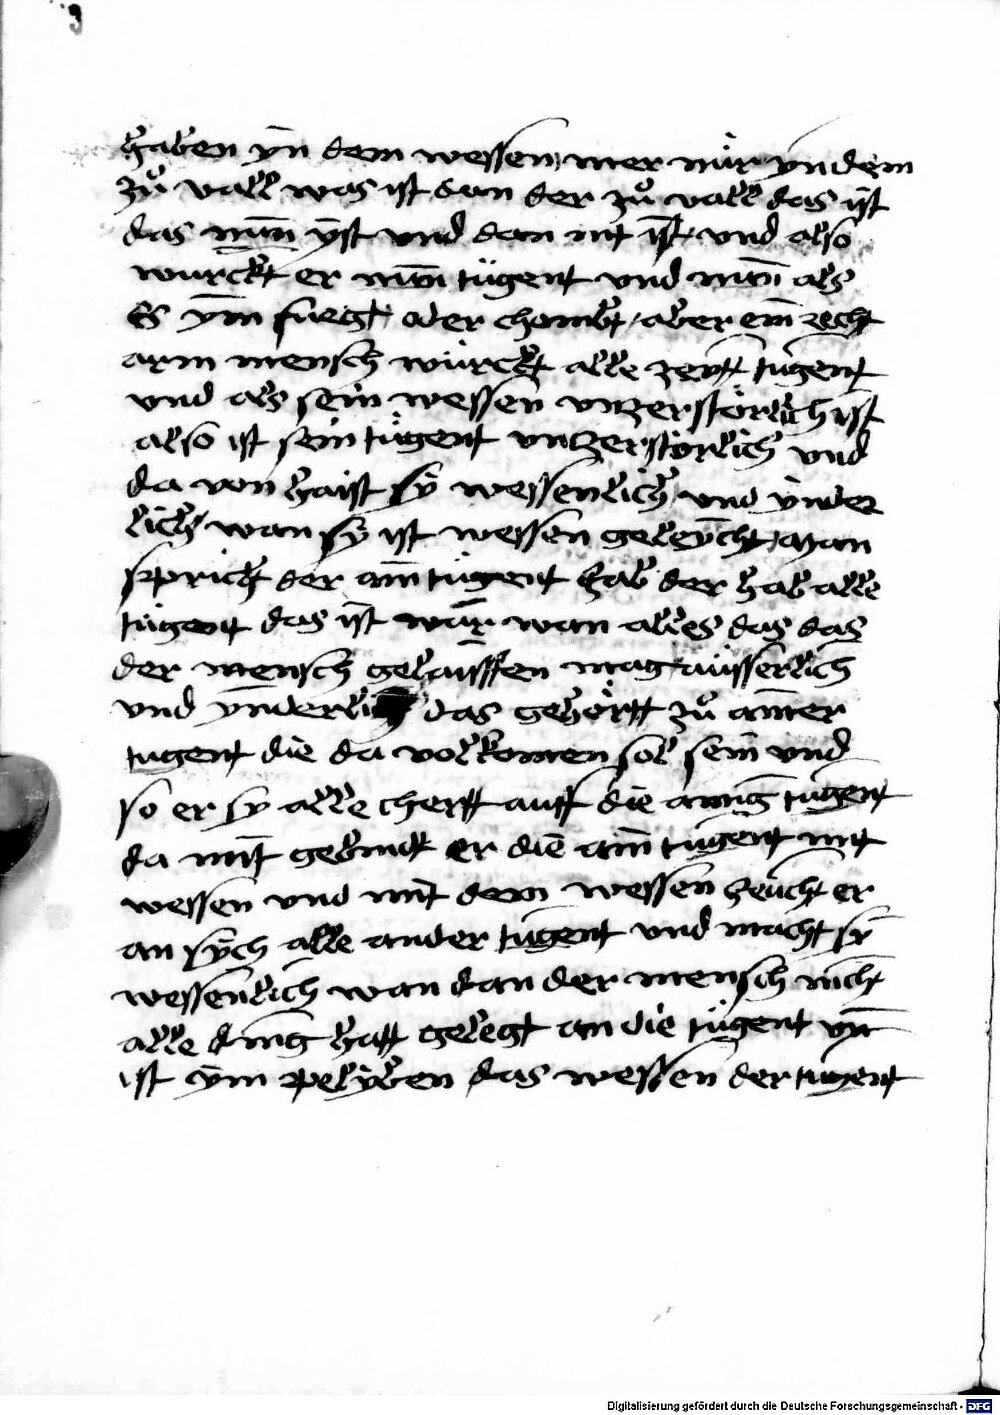 haben yn dem wessen mer nür yn dem
zů vall was ist dan der zů vall das ist
das nun yst und dan nit ist und also
wurckt er nun tügent und nun als
es ym fuegt oder chombt / aber ein recht
arm mensch würckt alle zeytt tugent
und als sein wessen unzerstörlich ist
also ist sein tügent unzerstörlich und
da von haist sy wessenlich und ynder
lich wan sy ist wessen geleycht man
sprich der ain tugent hab der hab alle
tügent das ist war wan alles das das
der mensch gelaissten mag aüsserlich
und ynderlich das gehörtt zů ainer
tugent die da volkomen sol sein und
so er sy alle chertt auff die ainig tugent
da mit gebindt er die ain tugent mit
wessen und mit dem wessen zeücht er
an sych alle ander tugent und macht sy
wessenlich wan dan der mensch nicht
alle ding hatt gelegt an die tügent
ist ym pelyben das wessen der tugent
Digitalisierung gefördert durch die Deutsche Forschungsgemeinschaft - DFG